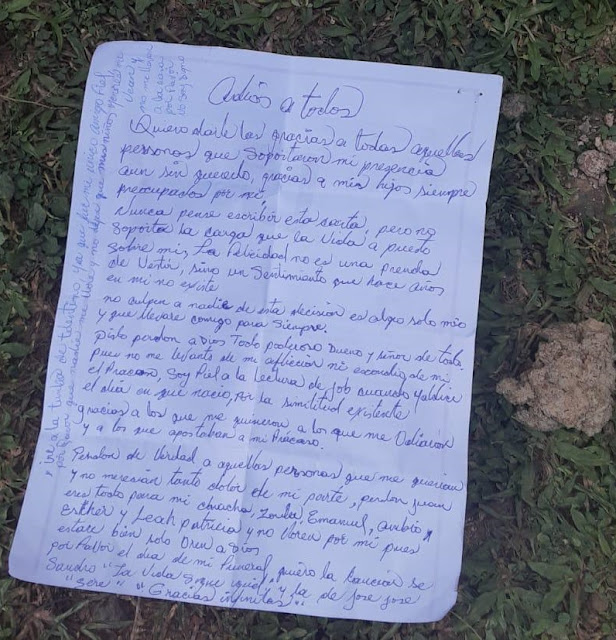 Adiós a todos
Quiero darle las gracias a todas aquellas
personas que soportaron mi presencia
aun sin quererlo, gracias a mis hijos siempre
preocupados por mi,
Nunca pense escribir esta carta, pero no
soporto la carga que la vida a puesto
sobre mi, La felicidad no es una prenda
de vestir, sino un sentimiento que hace años
en mi no existe
no culpen a nadie de esta decision es algo solo mio
y que llevare comigo para siempre.
Pido perdon a Dios Todo poderoso Dueño y señor de todo.
pues no me levante de mi afliccion ni escondio de mi
el fracaso, Soy fiel a la lectura de job cuando maldice
el dia en que nacio, por la similitud existente
gracias a los que me quisieron, a los que me odiaron
y a los que apostaban a mi fracaso.
Perdon de Verdad, a aquellas personas que me querian
y no meresian tanto dolor de mi parte, perdon juan
eres todo para mi chacha, Emanuel,
Esther y Leah patricia y no lloren por mi pues
estare bien solo Oren a Dios
por favor el dia de mi funeral, quiero la cancion de
Sandro "La Vida sigue igual, y la de jose jose
"Gracias infinitas"
ire a la tumba de
ya que fue mi unico amigo fiel
por favor que nadie me llore y no dejen que mis niños
vean y
no me lleven
a la
por favor